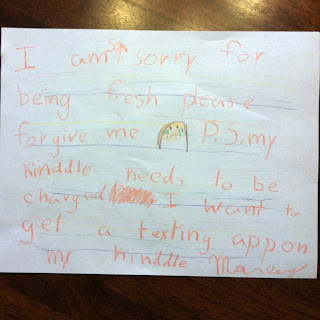 I am so sorry for
being fresh please
forgive me P.S. my
Kinddle needs to be
charged I want to
get a texting app on
my Kinddle